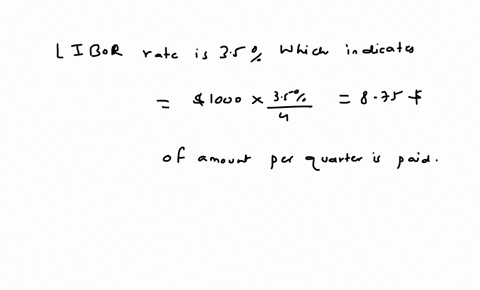 LIBOR rate is 3.5% which indicates
= $1000 × 3.5%/4 = 8.75 $
of amount per quarter is paid.